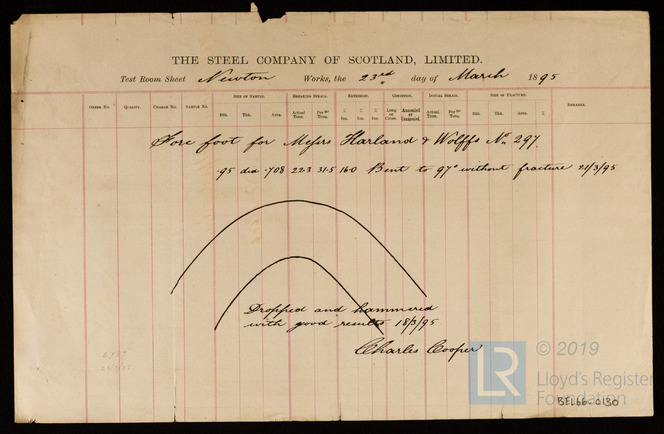 THE STEEL COMPANY OF SCOTLAND, LIMITED.
Test Room Sheet Newton Works, the 23rd day of March 1895
SIZE OF SAMPLE. BREAKING STRAIN. EXTENSION. CONDITION. INITIAL STRAIN. SIZE OF FRACTURE.
ORDER No. QUALITY. CHARGE No. SAMPLE No. Bth. Thk. Area. Actual Tons. Per □" Tons. Ins. Ins. Ins. Long or Cross. Annealed or Unanneal. Actual Tons. Per □" Tons. Bth. Thk. Area. REMARKS.
Fore foot for Messrs Harland & Wolffs No 297.
.95 dia .708 22.3 31.5 16.0 Bent to 97° without fracture 21/3/95
Dropped and hammered
with good results 18/3/95
Charles Cooper
LR
© 2019
Lloyd's Register
Foundation
BEL66-0130